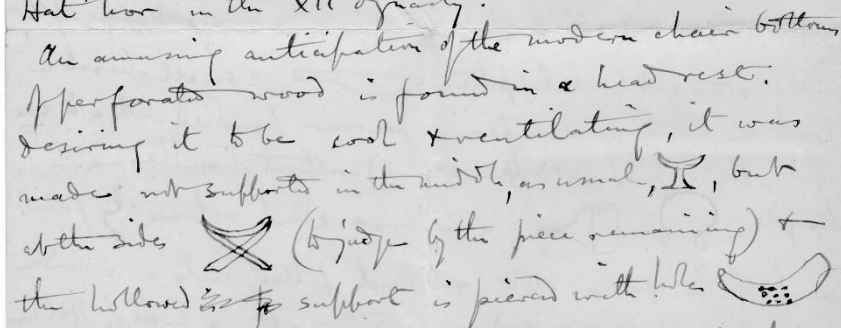 Hat hor in the XII dynasty.
An amusing anticipation of the modern chair bottoms
of perforated wood is found in a head rest.
desiring it to be cool & ventilating, it was
made not supported in the middle, as usual, , but
at the sides (to judge by the piece remaining) &
the hollowed support is pierced with holes